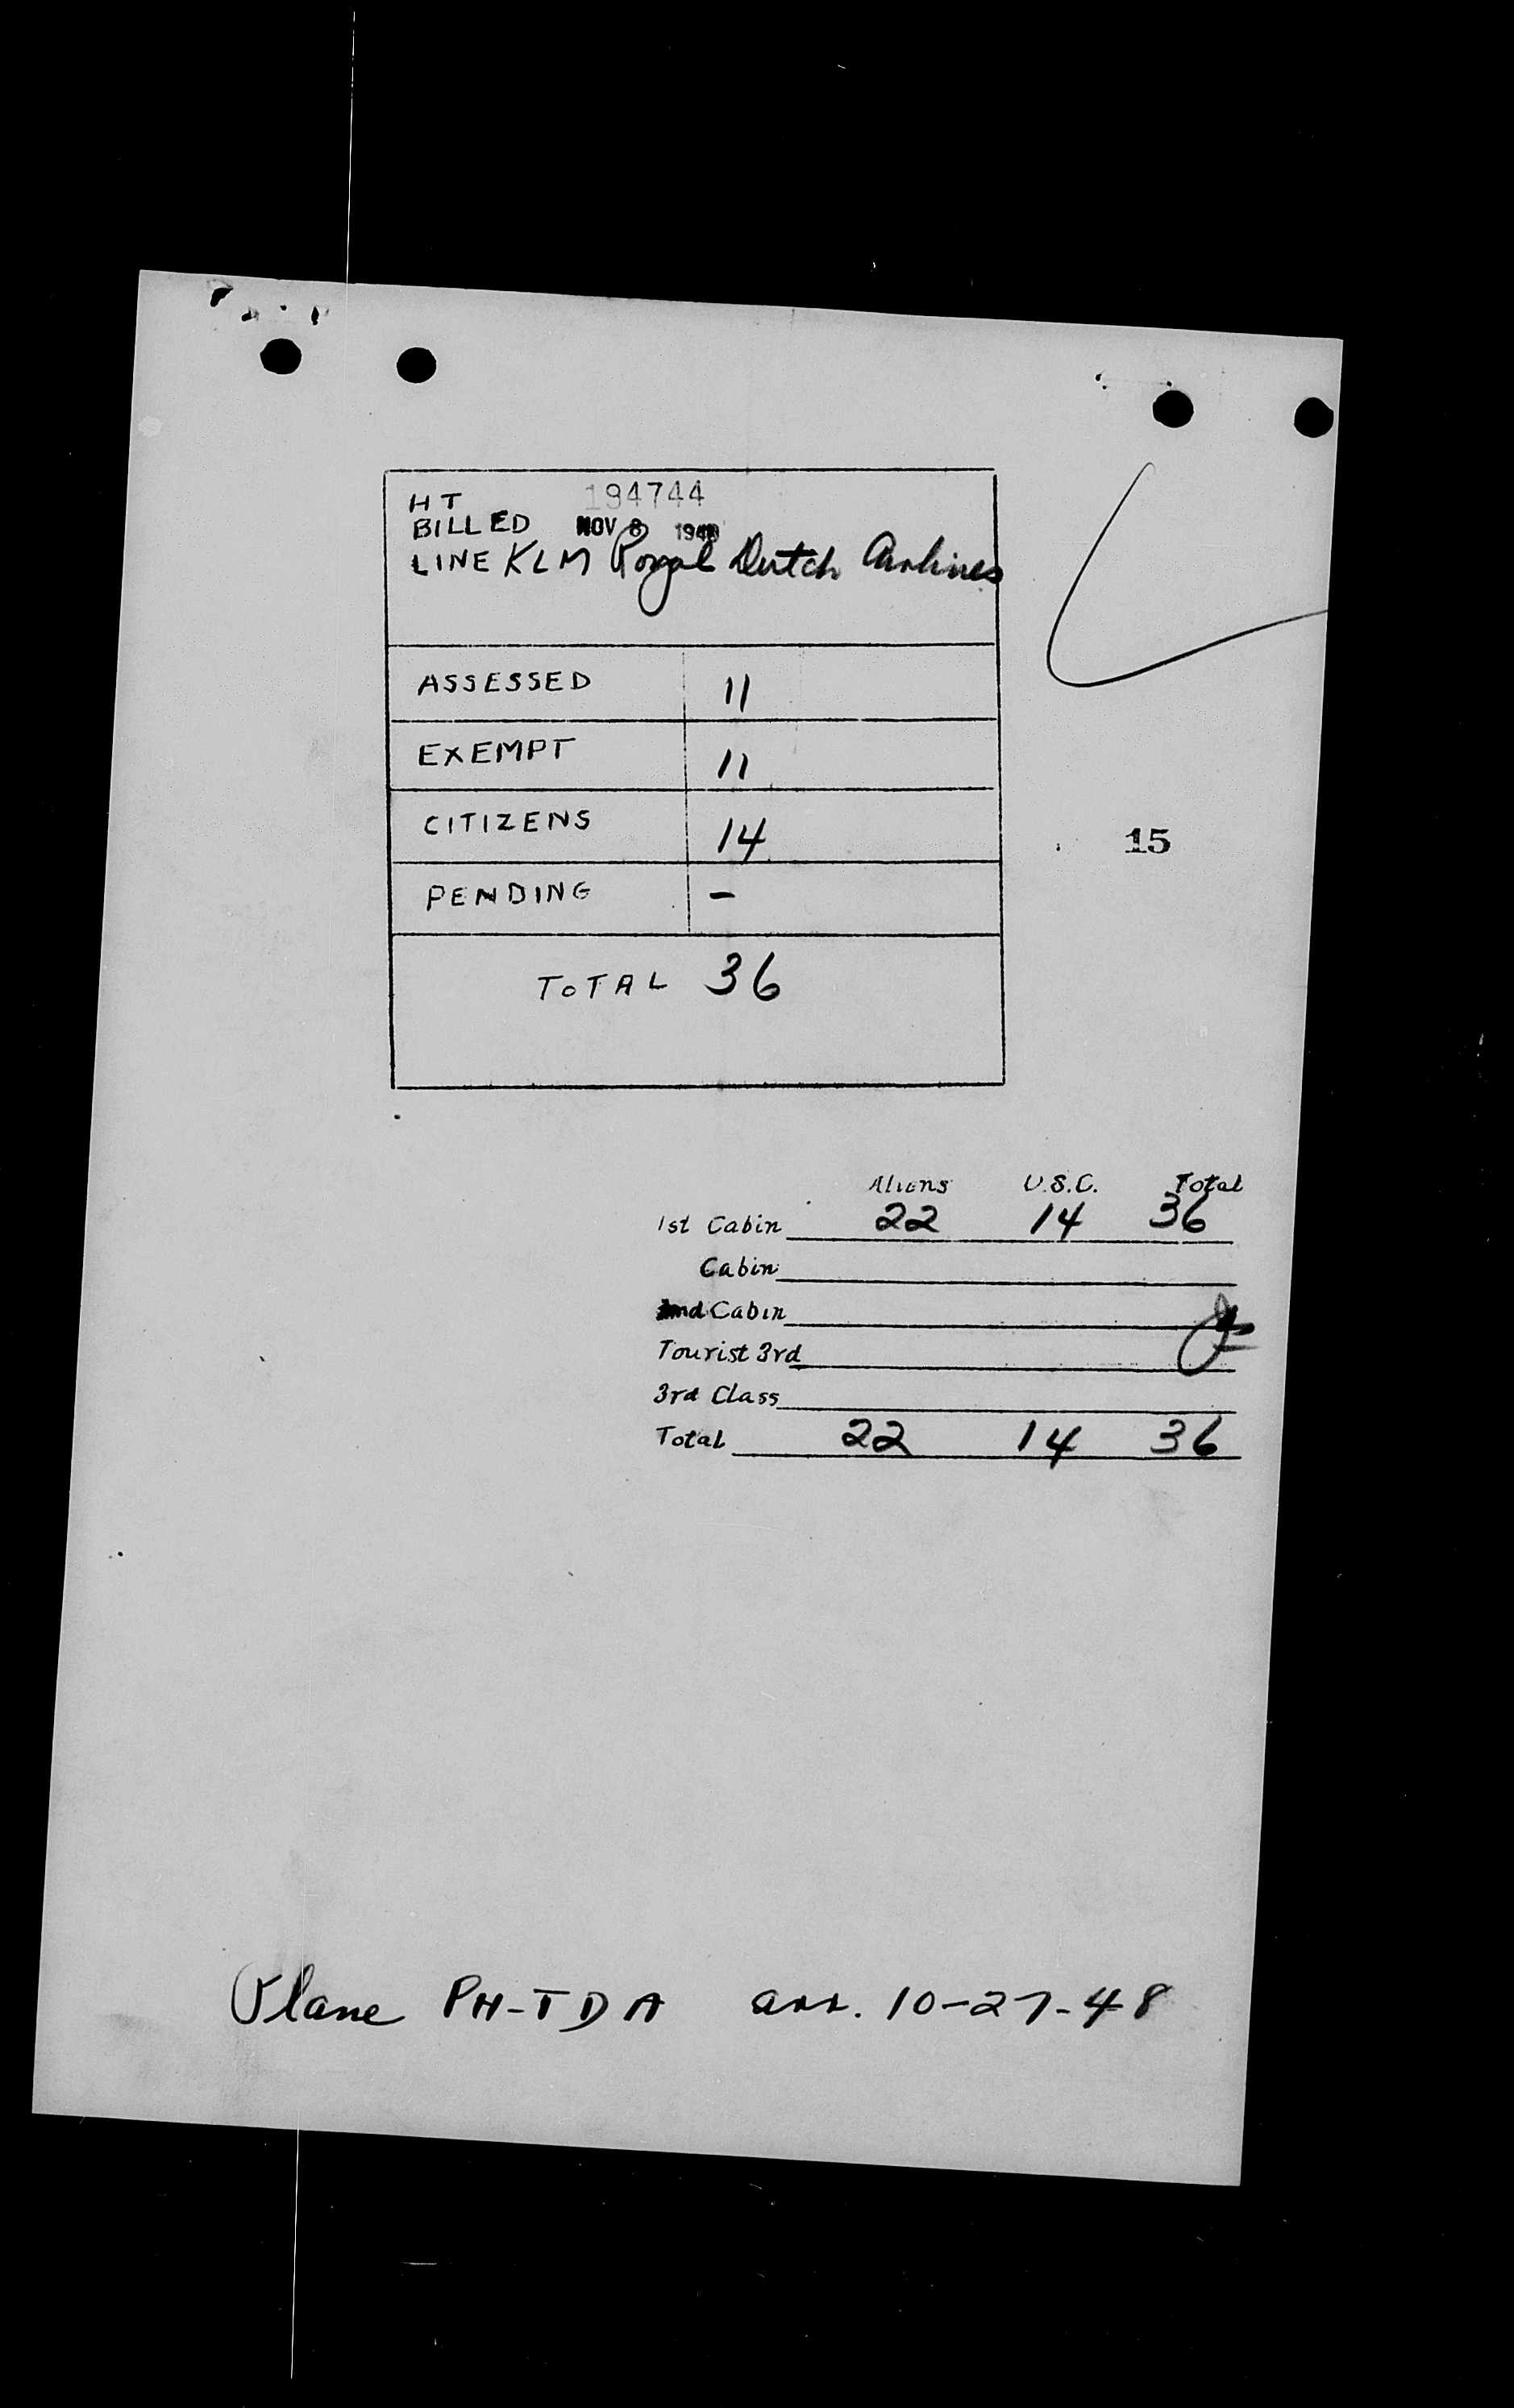 HT 194744
BILLED NOV 8 1948
LINE KLM Royal Dutch Airlines
ASSESSED 11
EXEMPT 11
CITIZENS 14
15
PENDING -
TOTAL 36
Aliens U.S.C. Total
1st Cabin 22 14 36
Cabin
2nd Cabin
Tourist 3rd
3rd Class
Total 22 14 36
Plane PH-TDA arr. 10-27-48